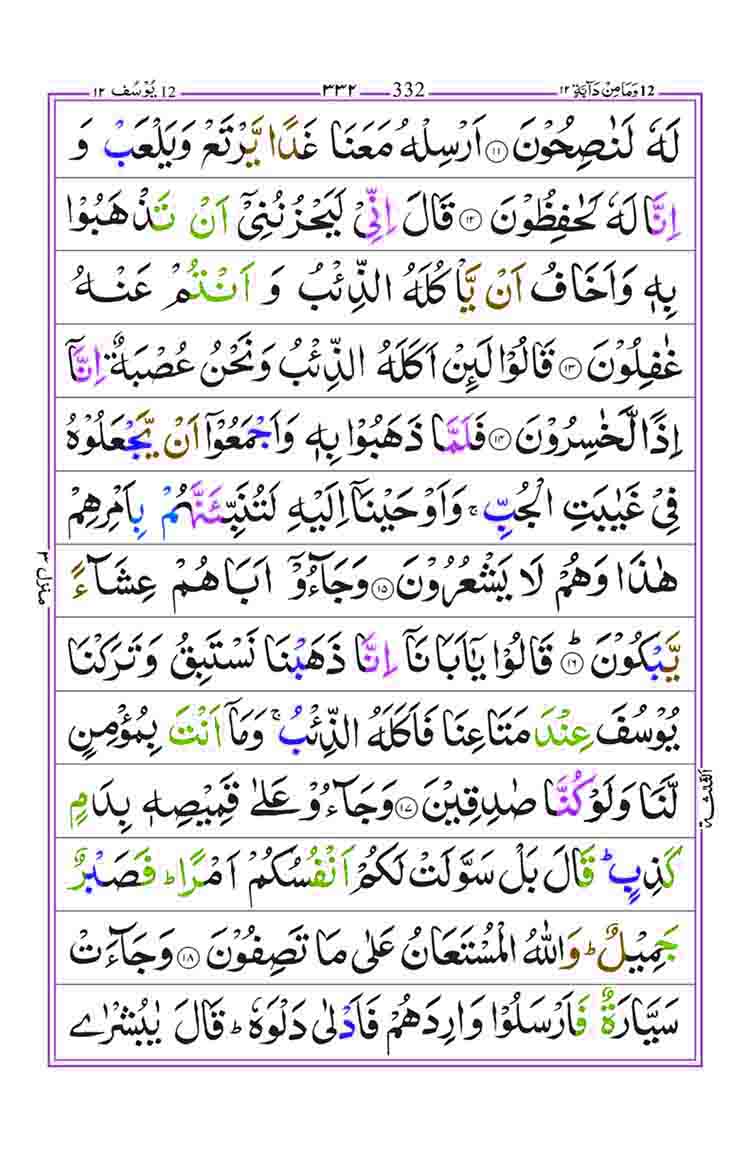 12 وَمَا مِنْ دَآبَّةٍ ١٢   332 ــ ٣٣٢   12 يُوْسُف ١٢
لَهٗ لَنٰصِحُوْنَ ۝١١ اَرْسِلْهُ مَعَنَا غَدًا يَّرْتَعْ وَيَلْعَبْ وَ
اِنَّا لَهٗ لَحٰفِظُوْنَ ۝١٢ قَالَ اِنِّىْ لَيَحْزُنُنِىْٓ اَنْ تَذْهَبُوْا
بِهٖ وَاَخَافُ اَنْ يَّاْكُلَهُ الذِّئْبُ وَ اَنْتُمْ عَنْهُ
غٰفِلُوْنَ ۝١٣ قَالُوْا لَىِٕنْ اَكَلَهُ الذِّئْبُ وَنَحْنُ عُصْبَةٌ اِنَّاۤ
اِذًا لَّخٰسِرُوْنَ ۝١٤ فَلَمَّا ذَهَبُوْا بِهٖ وَاَجْمَعُوْٓا اَنْ يَّجْعَلُوْهُ
فِىْ غَيٰبَتِ الْجُبِّ ۚ وَاَوْحَيْنَاۤ اِلَيْهِ لَتُنَبِّئَنَّهُمْ بِاَمْرِهِمْ
هٰذَا وَهُمْ لَا يَشْعُرُوْنَ ۝١٥ وَجَآءُوْٓ اَبَاهُمْ عِشَآءً
يَّبْكُوْنَ ؕ ۝١٦ قَالُوْا يٰۤاَبَانَاۤ اِنَّا ذَهَبْنَا نَسْتَبِقُ وَتَرَكْنَا
يُوْسُفَ عِنْدَ مَتَاعِنَا فَاَكَلَهُ الذِّئْبُ ۚ وَمَاۤ اَنْتَ بِمُؤْمِنٍ
لَّنَا وَلَوْ كُنَّا صٰدِقِيْنَ ۝١٧ وَجَآءُوْ عَلٰى قَمِيْصِهٖ بِدَمٍ
كَذِبٍ ؕ قَالَ بَلْ سَوَّلَتْ لَكُمْ اَنْفُسُكُمْ اَمْرًا ؕ فَصَبْرٌ
جَمِيْلٌ ؕ وَاللّٰهُ الْمُسْتَعَانُ عَلٰى مَا تَصِفُوْنَ ۝١٨ وَجَآءَتْ
سَيَّارَةٌ فَاَرْسَلُوْا وَارِدَهُمْ فَاَدْلٰى دَلْوَهٗ ؕ قَالَ يٰبُشْرٰى
منزل ٣
الثلٰثة